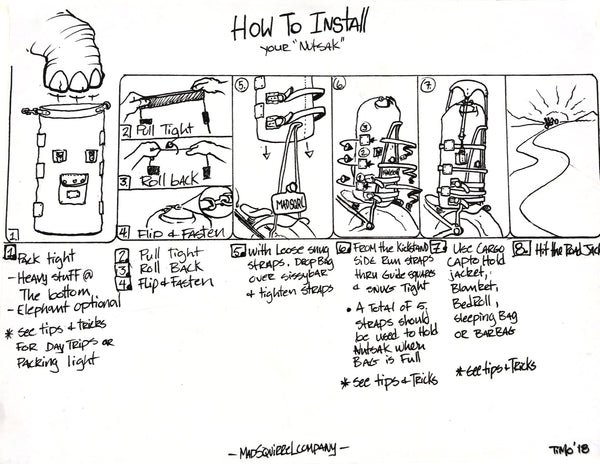 How To Install
your "Nutsak"
1.
2 Pull Tight
3. Roll back
4. Flip & Fasten
5.
MADSQRL
6.
7.
1. Pack tight
- Heavy stuff @
The bottom
- Elephant optional
* see tips & tricks
FOR DAY TRIPS OR
Packing light
2 Pull Tight
3. Roll BACK
4. Flip & Fasten
5. with Loose snug
STRAPS, DROP BAG
over sissybar
& tighten straps
6. FROM the Kickstand
SIDE Run straps
thru Guide squares
& SNUG Tight
• A TOTAL OF 5
STRAPS should
be used to Hold
Nutsak when
BAG is Full
* see tips & Tricks
7. Use CARGO
CAP to Hold
jacket,
Blanket,
BedRoll,
sleeping BAG
OR BARBAG
* see tips & Tricks
8. Hit the Road Jack
- MADSQUIRREL COMPANY -
TiMo '18